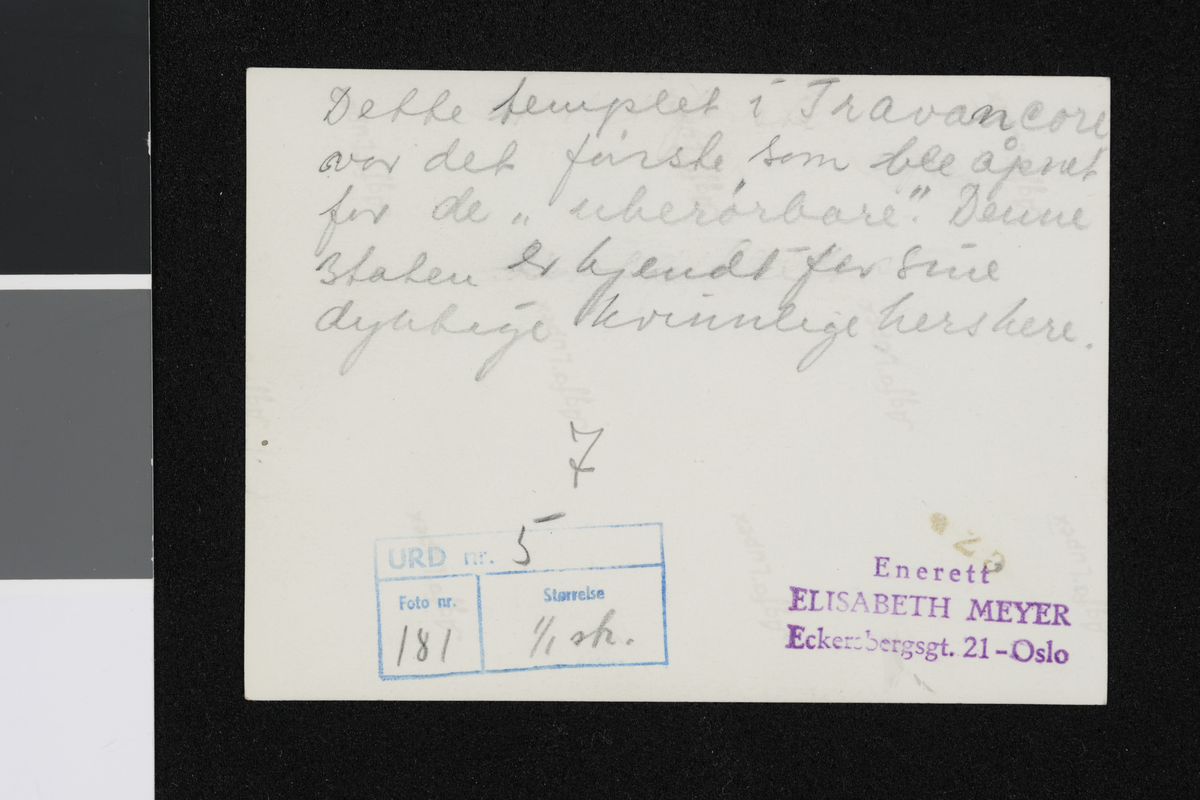 Dette templet i Travancore
var det første som ble åpnet
for de „uberørbare". Denne
Staten er kjendt for sine
dyktige kvinnlige herskere.
7
URD nr. 5
Foto nr. Størrelse
181 1/1 sk.
Enerett
ELISABETH MEYER
Eckersbergsgt. 21-Oslo